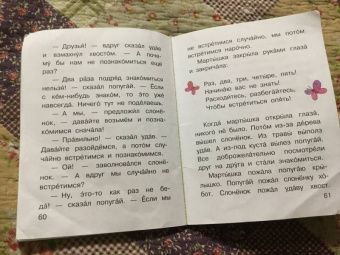 — Друзья́! — вдруг сказа́л уда́в
и взмахну́л хвосто́м. — А поче-
му́ бы нам не познако́миться ещё
раз?
— Два ра́за подря́д знако́миться
нельзя́! — сказа́л попуга́й. — Е́сли
с ке́м-нибудь знако́м, то э́то уже́
навсегда́. Ничего́ тут не поде́лаешь.
— А мы, — предложи́л слонё-
нок, — дава́йте возьмём и позна-
ко́мимся снача́ла!
— Пра́вильно! — сказа́л уда́в.
Дава́йте разойдёмся, а пото́м слу-
ча́йно встре́тимся и познако́мимся.
— Ой! — заволнова́лся слонё-
нок. — А вдруг мы случа́йно не
встре́тимся?
— Ну, э́то-то как раз не бе-
да́! — сказа́л попуга́й. — Е́сли мы
60
не встре́тимся случа́йно, мы пото́м
встре́тимся наро́чно.
Марты́шка закры́ла рука́ми глаза́
и закрича́ла:
Раз, два, три, четы́ре, пять!
Начина́ю вас не знать!
Расходи́тесь, разбега́йтесь,
Что́бы встре́титься опя́ть!
Когда́ марты́шка откры́ла глаза́,
никого́ не́ было. Пото́м из-за де́рева
вы́шел слонёнок. Из травы́ вы́полз
уда́в. А из-под куста́ вы́лез попуга́й.
Все доброжела́тельно посмотре́ли
друг на дру́га и ста́ли знако́миться.
Марты́шка пожа́ла попуга́ю кры́-
лышко. Попуга́й пожа́л слонёнку хо́-
бот. Слонёнок пожа́л уда́ву хвост.
61